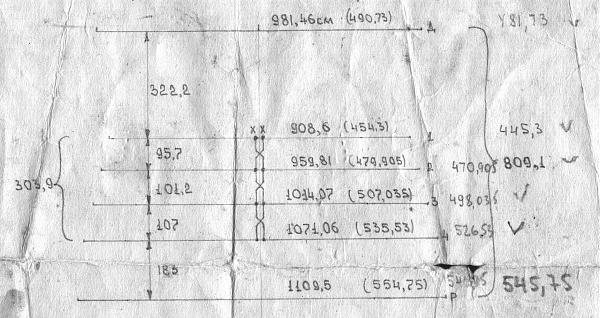 981,46см (490,73) Д 481,73
322,2
x x 908,6 (454,3) 1 445,3
95,7
959,81 (479,905) 2 470,905 809,1
303,9
101,2
1014,07 (507,035) 3 498,035
107
1071,06 (535,53) 4 526,53
18,5
1109,5 (554,75) P 545,75